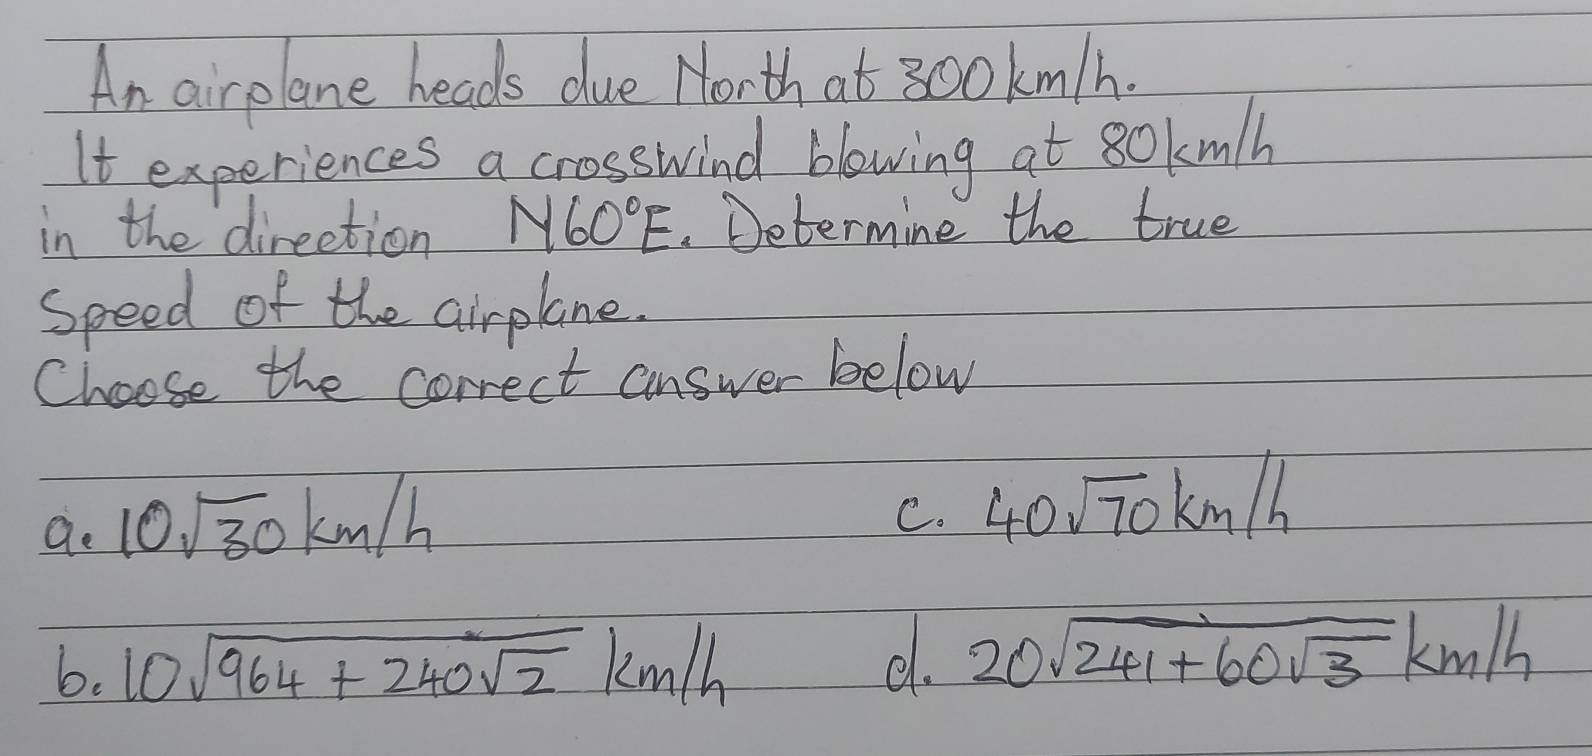 An airplane heads due North at 300km/h.
It experiences a crosswind blowing at 80km/h
in the direction N60°E. Determine the true
Speed of the airplane.
Choose the correct answer below
a. 10√30 km/h c. 40√70 km/h
b. 10√(964 + 240√2) km/h d. 20√(241 + 60√3) km/h